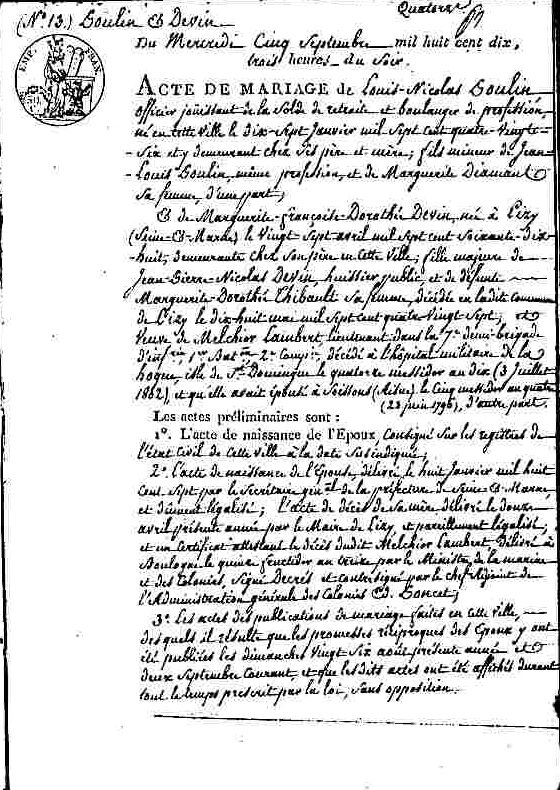 Quatorze
(N.º 13.) Doulin & Devin
Du Mercredi Cinq Septembre mil huit cent dix,
trois heures du Soir.
EMP. FRAN
ACTE DE MARIAGE de Louis-Nicolas Doulin
officier jouissant de la Solde de retraite et boulanger de profession,
né en cette Ville le dix-Sept Janvier mil Sept cent quatre-Vingt-
-Six et y demeurant chez Ses père et mère; fils mineur de Jean-
-Louis Doulin, même profession, et de Marguerite Diamant
Sa femme, d'une part;
& de Marguerite-françoise-Dorothée Devin, née à Lizy
(Seine-&-Marne) le Vingt-Sept avril mil Sept cent Soixante-dix-
huit, demeurante chez Son père en cette Ville; fille majeure de
Jean-Pierre-Nicolas Devin, huissier public, et de défunte
Marguerite-Dorothée Thibault Sa femme, décédée en ladite Commune
de Lizy le dix-huit mai mil Sept cent quatre Vingt-Sept; et
Veuve de Melchior Lambert, lieutenant dans la 7e demi-brigade
d'infrie 1er Baton 2e Compie, décédé à l'hôpital militaire de la
hogue, isle de St Domingue le quatorze messidor an dix (3 Juillet
1802), et qu'elle avait épousé à Soissons (Aisne) le Cinq messidor an quatre
(23 juin 1796), d'autre part.
Les actes préliminaires sont :
1º. L'acte de naissance de l'Epoux, Consigné Sur les registres de
l'état Civil de Cette Ville à la date Susindiquée;
2º. L'acte de naissance de l'Epouse, délivré le huit Janvier mil huit
Cent Sept par le Secrétaire génal de la préfecture de Seine-&-Marne
et dûment légalisé; L'acte de décès de Sa mère, délivré le douze
avril présente année par le Maire de Lizy et pareillement légalisé;
et un Certificat attestant le décès dudit Melchior Lambert, Délivré à
Boulogne le quinze fructidor an treize par le Ministre de la marine
et des Colonies, Signé Decrès et Contresigné par le chef Adjoint de
l'Administration générale des Colonies Ed. Poncet;
3º. Les actes des publications de mariage faites en cette Ville,
desquels il résulte que les promesses réciproques des Epoux y ont
été publiées les dimanches Vingt Six août présente année et
deux Septembre Courant, et que les dits actes ont été affichés durant
tout le temps prescrit par la loi, Sans opposition.